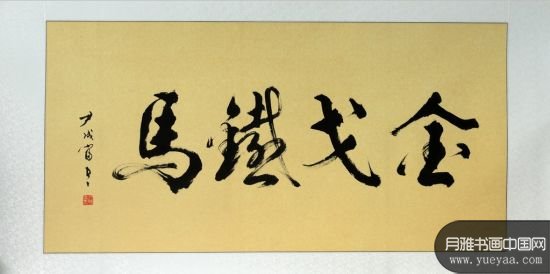 金戈鐵馬
尹成富
月雅书画中国网
www.yueyaa.com